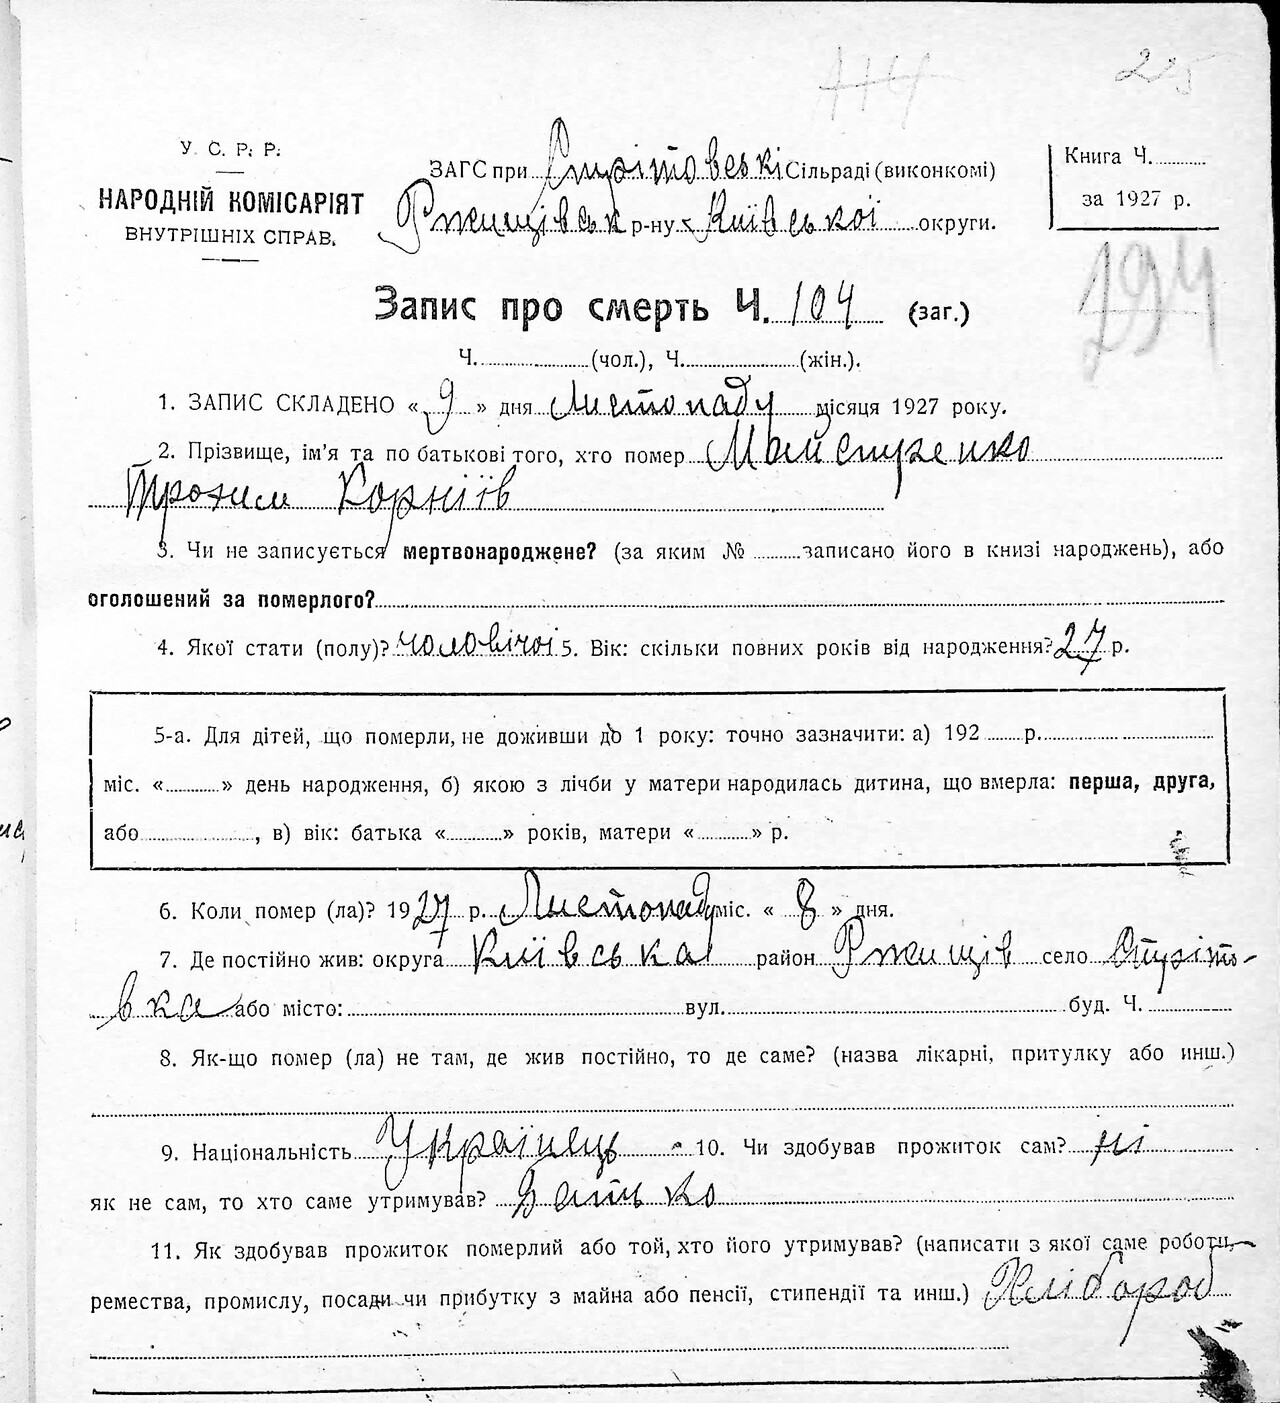 225
У. С. Р. Р.
НАРОДНІЙ КОМІСАРІЯТ
ВНУТРІШНІХ СПРАВ.
ЗАГС при Стрітовські Сільраді (виконкомі)
Ржищівськ р-ну Київської округи.
Книга Ч.
за 1927 р.
194
Запис про смерть Ч. 104 (заг.)
Ч. (чол.), Ч. (жін.).
1. ЗАПИС СКЛАДЕНО « 9 » дня Листопаду місяця 1927 року.
2. Прізвище, ім'я та по батькові того, хто помер Майстренко
Трохим Корніїв
3. Чи не записується мертвонароджене? (за яким № записано його в книзі народжень), або
оголошений за померлого?
4. Якої стати (полу)? чоловічої 5. Вік: скільки повних років від народження? 27 р.
5-а. Для дітей, що померли, не доживши до 1 року: точно зазначити: а) 192 р.
міс. « » день народження, б) якою з лічби у матери народилась дитина, що вмерла: перша, друга,
або , в) вік: батька « » років, матери « » р.
6. Коли помер (ла)? 1927 р. Листопаду міс. « 8 » дня.
7. Де постійно жив: округа Київська район Ржищів село Стріто-
вка або місто: вул. буд. Ч.
8. Як-що помер (ла) не там, де жив постійно, то де саме? (назва лікарні, притулку або инш.)
9. Національність Українець 10. Чи здобував прожиток сам? ні
як не сам, то хто саме утримував? Батько
11. Як здобував прожиток померлий або той, хто його утримував? (написати з якої саме роботи,
ремества, промислу, посади чи прибутку з майна або пенсії, стипендії та инш.) Хлібороб